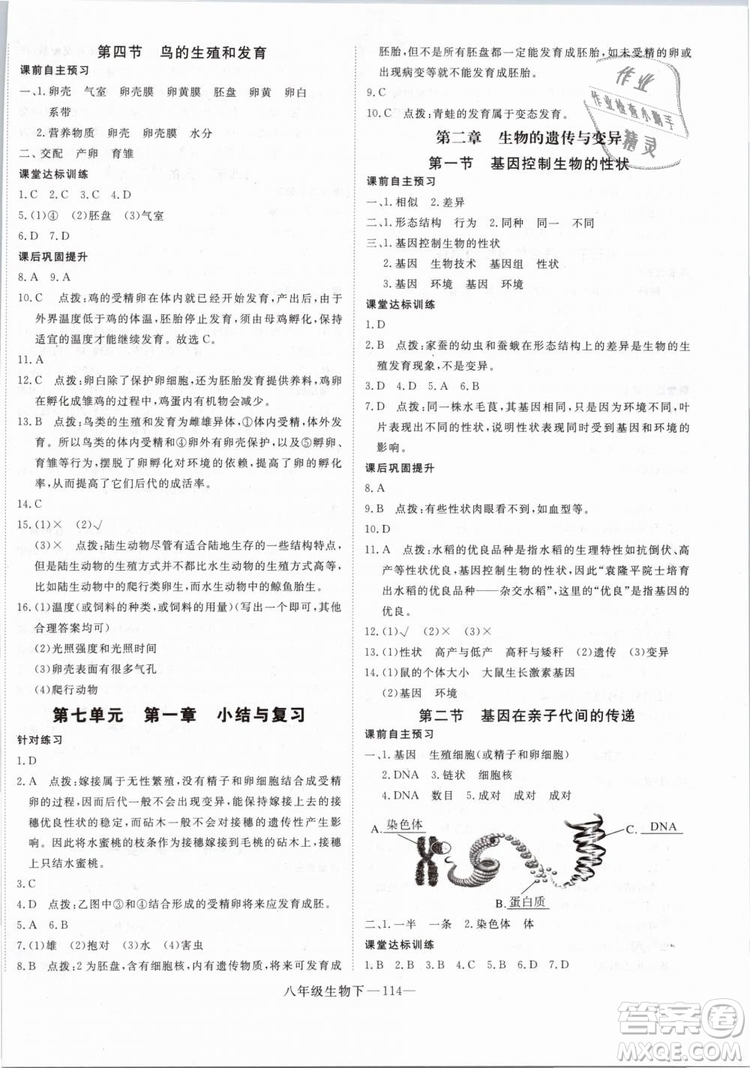 第四节　鸟的生殖和发育
课前自主预习
一、1.卵壳　气室　卵壳膜　卵黄膜　胚盘　卵黄　卵白
系带
2.营养物质　卵壳　卵壳膜　水分
二、交配　产卵　育雏
课堂达标训练
1.C　2.C　3.C　4.D
5.(1)④　(2)胚盘　(3)气室
6.D　7.D
课后巩固提升
8.A　9.A
10.C　点拨：鸡的受精卵在体内就已经开始发育，由于
外界温度低于鸡的体温，胚胎停止发育，须由母鸡孵化，保持
适宜的温度才能继续发育。故选C。
11.A
12.C　点拨：卵白除了保护卵细胞，还提供营养，鸡卵
在孵化成雏鸡的过程中，鸡蛋内有机物会减少。
13.B　点拨：鸟类的生殖和发育为雌雄异体，①体内受精，体外发
育。所以鸟类的生殖和④卵外有卵壳保护，以及⑤有孵卵
育雏行为，摆脱了卵孵化对环境的依赖，提高了卵的孵化
率，提高了它们后代的成活率。
14.C
15.(1)×　(2)√
(3)×　点拨：陆生动物尽管有适合陆地生存的一些结构特点，
但陆生动物的生殖方式不一定比水生动物的生殖方式高等，
比如陆生动物中的爬行类卵生，而水生动物的鲸鱼胎生。
16.(1)温度(或饲料的种类，或饲料的用量)(写出一个即可，其他
合理答案均可)
(2)光照强度和光照时间
(3)卵壳表面有很多气孔
(4)爬行动物
第七单元　第一章　小结与复习
针对练习
1.D
2.A　点拨：嫁接属于无性繁殖，没有精子和卵细胞结合成受精
卵的过程，因而后代一般不会出现变异，能保持嫁接上去的接
穗优良性状的稳定，而砧木一般不会对接穗的遗传性产生影
响。因此，水蜜桃的枝条作为接穗嫁接到毛桃的砧木上，接穗
上只结水蜜桃。
3.C
4.C　点拨：乙图中③和④形成的受精卵将来应发育成胚。
5.A　6.B
7.(1)雄　(2)抱对　(3)水　(4)害虫
8.B　点拨：2为胚盘，含有细胞核，内有遗传物质，将来发育成
胚胎，但不是所有胚盘都一定能发育成胚胎，如未受精的卵或
出现病变等就不能发育成胚胎。
9.C
10.C　点拨：青蛙的发育属于变态发育。
第二章　生物的遗传与变异
第一节　基因控制生物的性状
课前自主预习
一、1.相似　2.差异
二、1.形态结构　行为　2.同种　同一　不同
三、1.基因控制生物的性状
2.基因　生物技术　基因组　性状
3.基因　环境　基因　环境
课堂达标训练
1.D
2.A　点拨：家蚕的幼虫和蚕蛾在形态结构上的差异是生物的生
殖发育现象，不是变异。
3.D　4.A　5.C　6.B
7.D　点拨：同一株水毛茛，其基因相同，但因为环境不同，叶
片表现出不同的性状，说明性状相同受环境的
影响。
课后巩固提升
8.A
9.B　点拨：有些性状肉眼看不到，如血型等。
10.D
11.A　点拨：水稻的优良品种是指水稻的生理特性如抗倒伏、高
产等，基因控制生物的性状，因此“袁隆平院士培育
出水稻的优良品种——杂交水稻”，这里的“优良”是指基因的
优良。
12.(1)√　(2)×
13.(1)性状　高产与低产　高秆与矮秆　(2)遗传　(3)变异
14.(1)鼠的个体大小　大鼠生长激素基因
(2)基因　环境
第二节　基因在亲子代间的传递
课前自主预习
一、1.基因　生殖细胞(或精子和卵细胞)
2.DNA　3.链状　细胞核
4.DNA　数目　5.成对　成对
A.染色体
C.DNA
B.蛋白质
二、1.一半　一条　2.染色体　体
课堂达标训练
1.D　2.B　3.B　4.C　5.D　6.D
八年级生物下—114—
作业
作业检查小助手
精灵
答案圈
MXQE.COM